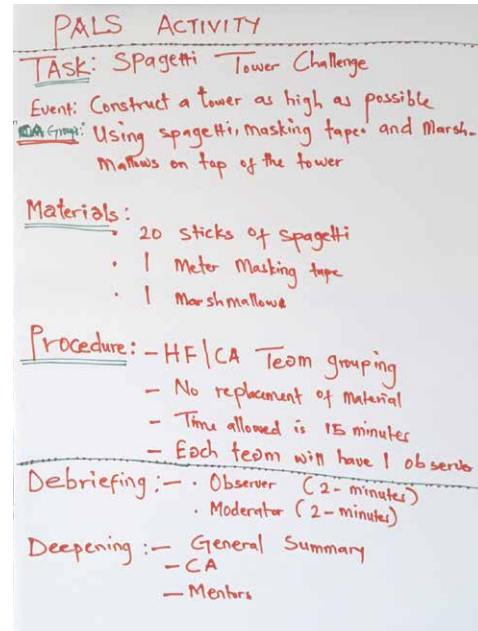 PALS ACTIVITY
TASK: Spagetti Tower Challenge
Event: Construct a tower as high as possible
Group: Using spagetti, masking tape and Marsh-
mallows on top of the tower
Materials:
• 20 sticks of spagetti
• 1 Meter Masking tape
• 1 Marshmallows
Procedure: - HF/CA Team grouping
- No replacement of Material
- Time allowed is 15 minutes
- Each team will have 1 observer
Debriefing: - • Observer (2-minutes)
• Moderator (2-minutes)
Deepening: - General Summary
- CA
- Mentors